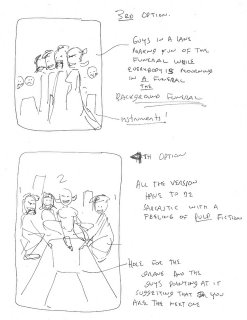 3RD OPTION.
GUYS IN A LANE
MAKING FUN OF THE
FUNERAL WHILE
EVERYBODY IS MOURNING
IN A FUNERAL
THE
BACKGROUND FUNERAL
INSTRUMENTS!
4TH OPTION
2
ALL THE VERSION
HAVE TO BE
SARCASTIC WITH A
FEELING OF PULP FICTION
HOLE FOR THE
GRAVE AND THE
GUYS POINTING AT IT
SUGGESTING THAT YOU
ARE THE NEXT ONE